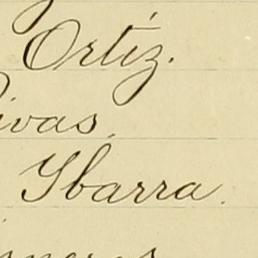 Ortiz.
ivas.
Ybarra.